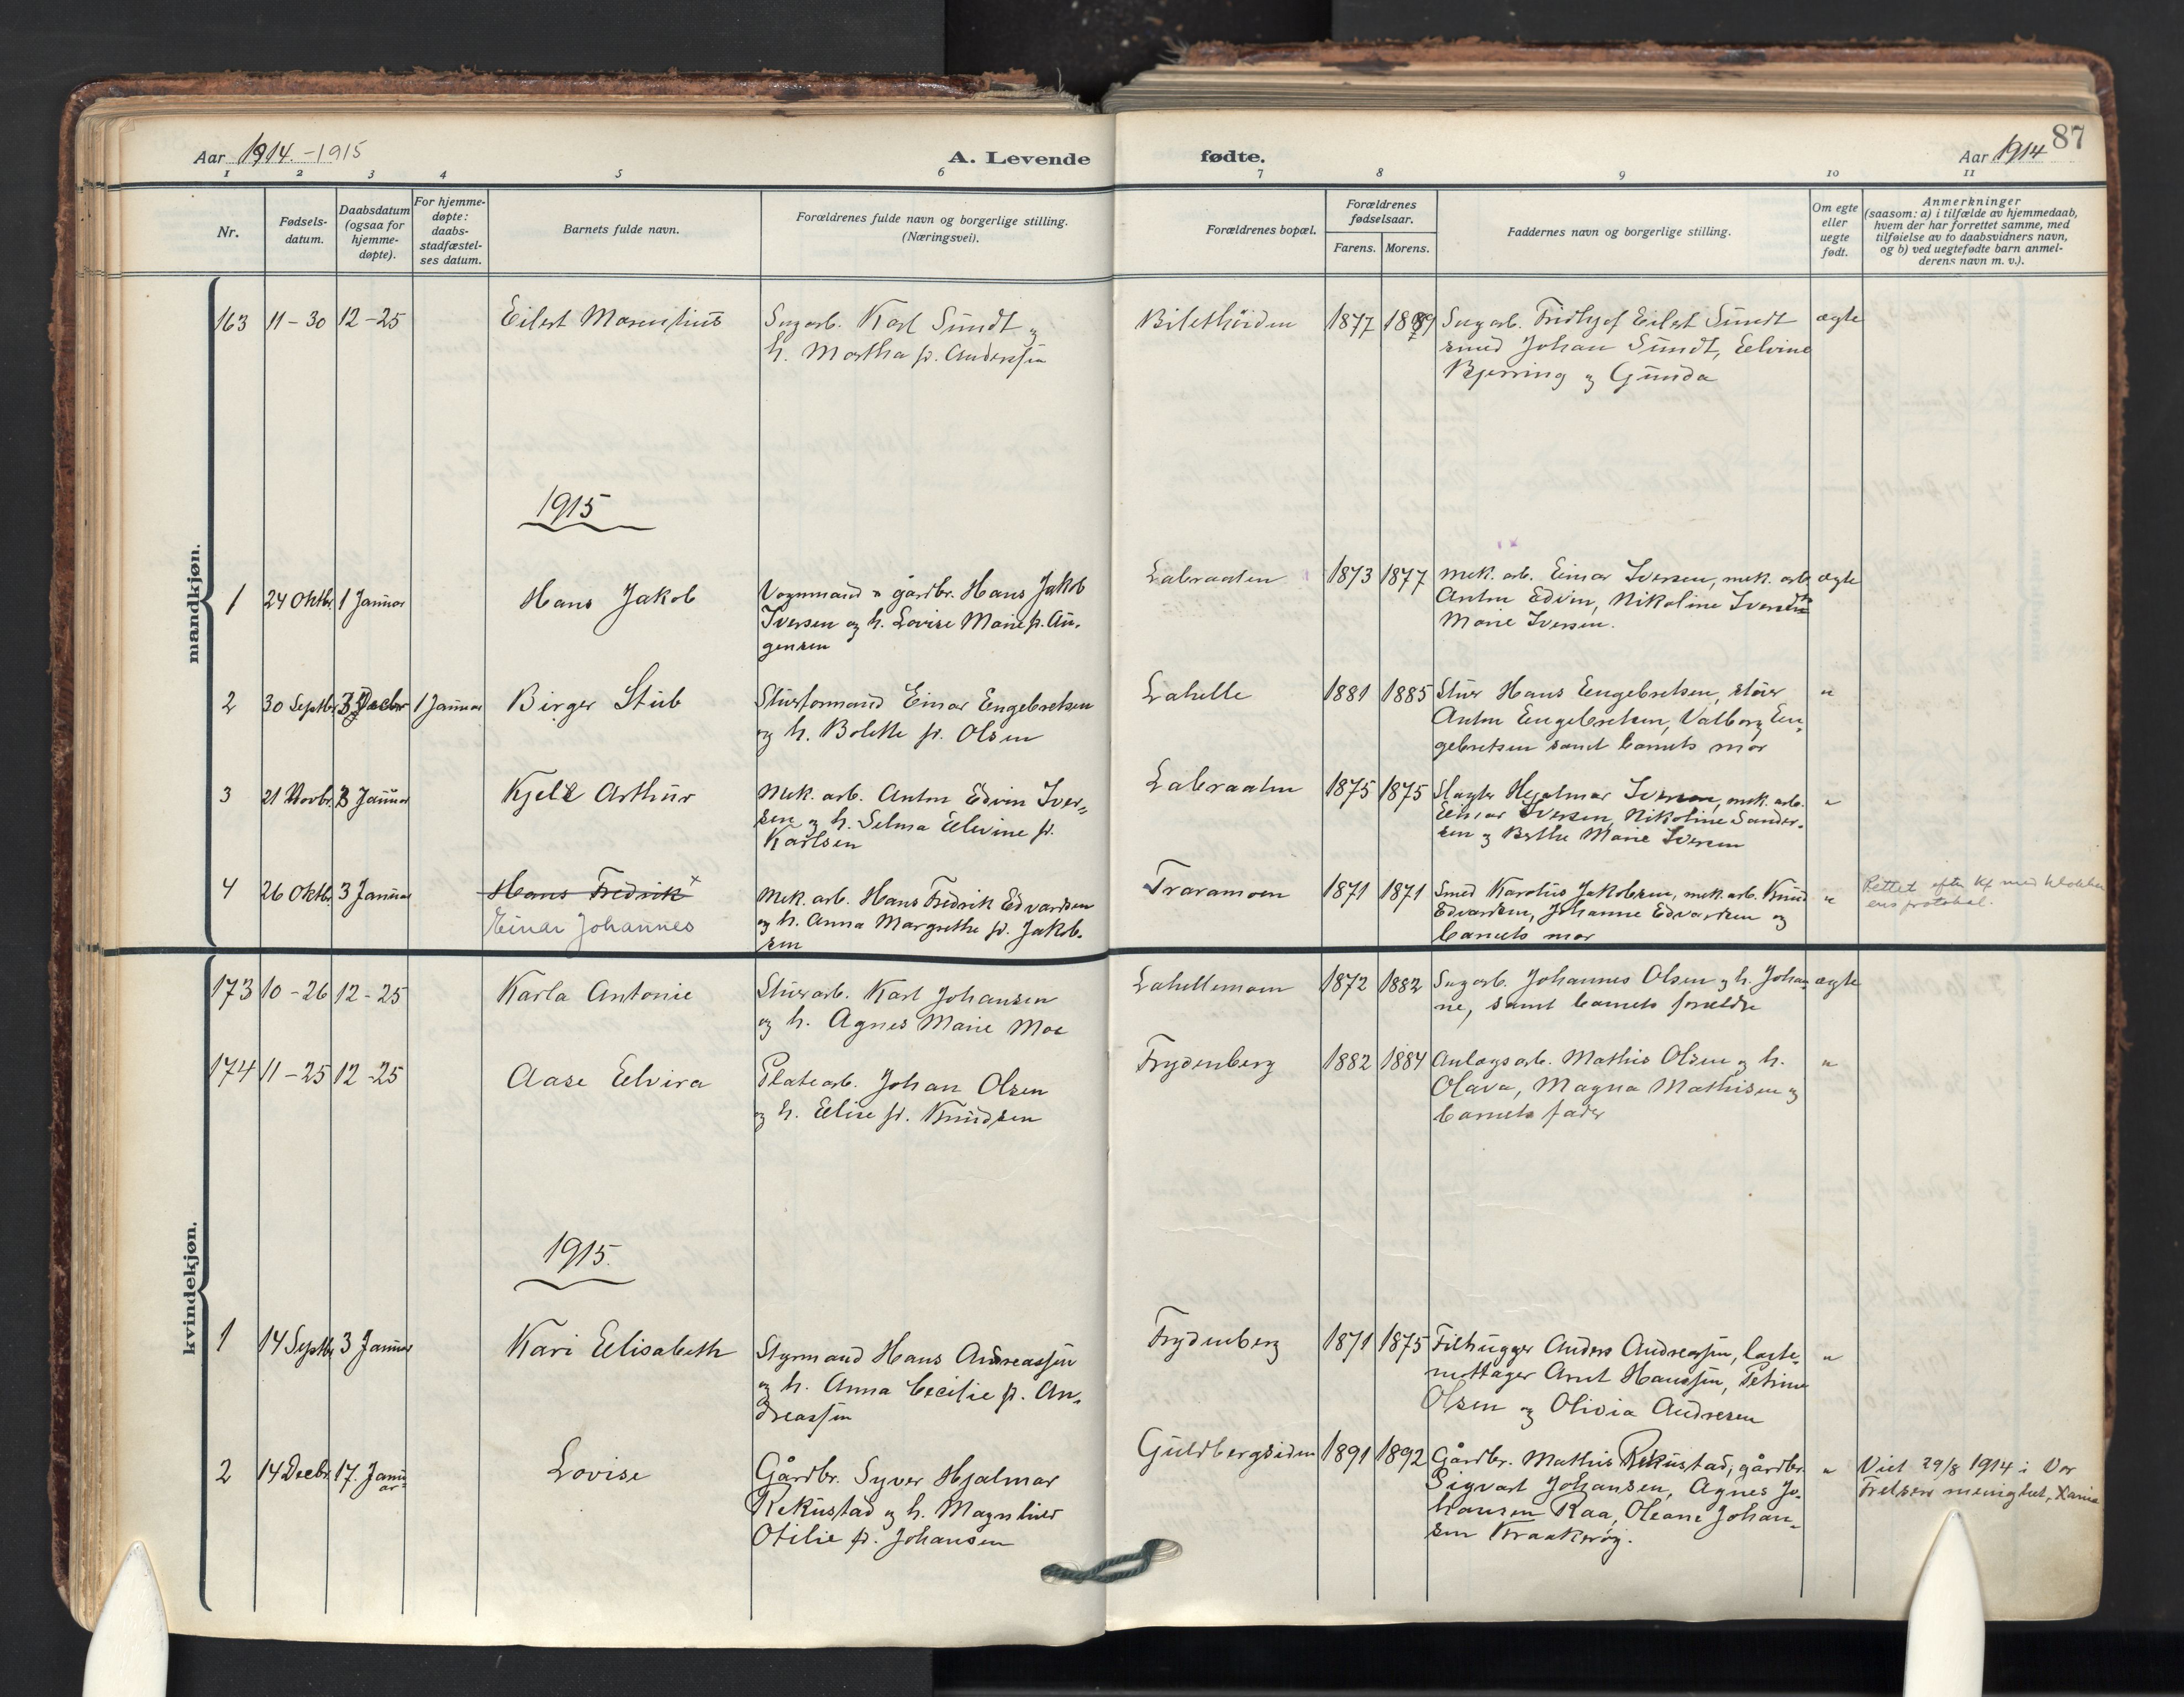 Aar 1914.-1915
A. Levende
fødte.
Aar 1914
87
1 2 3 4 5 6 7 8 9 10 11
Nr.
Fødsels-
datum.
Daabsdatum
(ogsaa for
hjemme-
døpte).
For hjemme-
døpte:
daabs-
stadfæstel-
ses datum.
Barnets fulde navn.
Forældrenes fulde navn og borgerlige stilling.
(Næringsvei).
Forældrenes bopæl.
Forældrenes
fødselsaar.
Farens. Morens.
Faddernes navn og borgerlige stilling.
Om egte
eller
uegte
født.
Anmerkninger
(saasom: a) i tilfælde av hjemmedaab,
hvem der har forrettet samme, med
tilføielse av to daabsvidners navn,
og b) ved uegtefødte barn anmel-
derens navn m. v.).
mandkjøn.
163 11-30 12-25 Eilert
Sagarb. Karl Sundt og
h. Martha f. Anderssen
1877
Sagarb. Fridtjof Eilert Sundt
smed Johan Sundt, Elvine
Bjerring og Gunda
ægte
1915
1 24 Oktbr. 1 Januar Hans Jakob
Vognmand & gårdbr. Hans Jakob
Iversen og h. Lovise Marie f. Au-
gensen
Labraaten 1873 1877
Mek. arb. Einar Iversen, mek. arb.
Anton Edvin, Nikoline Iversen
Marie Iversen.
ægte
2 30 Septbr. 1 Januar Birger Stub
Stuerformand Einar Engebretsen
og h. Bolette f. Olsen
Lahelle 1881 1885
Stuer Hans Engebretsen, stuer
Anton Engebretsen, Valborg En-
gebretsen samt barnets mor
"
3 21 Novbr. 3 Januar Kjell Arthur
Mek. arb. Anton Edvin Iver-
sen og h. Selma Elvine f.
Karlsen
Labraaten 1875 1875
Slagter Hjalmar Iversen, mek. arb.
Einar Iversen, Nikoline Sander-
sen og Berthe Marie Iversen
"
4 26 Oktbr. 3 Januar Hans Fredrik x
Einar Johannes
Mek. arb. Hans Fredrik Edvardsen
og h. Anna Margrethe f. Jakob-
sen
Traramoen 1871 1871
Smed Karolius Jakobsen, mek. arb. Knud
Edvardsen, Johanne Edvardsen og
barnets mor
"
Rettet efter kf med klokker
ens protokol.
kvindekjøn.
173 10-26 12-25 Karla Antonie
Stuerarb. Karl Johansen
og h. Agnes Marie Moe
Lahellemoen 1872 1882
Sagarb. Johannes Olsen og h. Johan-
ne, samt barnets forældre
ægte
174 11-25 12-25 Aase Elvira
Platearb. Johan Olsen
og h. Elise f. Knudsen
Frydenberg 1882 1884
Anlægsarb. Mathis Olsen og h.
Olava, Magna Mathisen og
barnets fader
"
1915.
1 14 Septbr. 3 Januar Kari Elisabeth
Styrmand Hans Andreassen
og h. Anna Cecilie f. An-
dreassen
Frydenberg 1871 1875
Filhugger Anders Andreassen, laste-
mottager Arnt Hanssen, Petrine
Olsen og Olivia Andresen
"
2 14 Decbr. 17. Janu-
ar
Lovise
Gårdbr. Syver Hjalmar
Rekustad og h. Magnhild
Otilie f. Johansen
Guldbergsiden 1891 1892
Gårdbr. Mathis Rekustad, gårdbr.
Sigvart Johansen, Agnes Jo-
hansen Kaa, Oleane Johan-
sen Kraakerøy.
"
Viet 29/8 1914 i Vor
Frelsers menighet, Kania